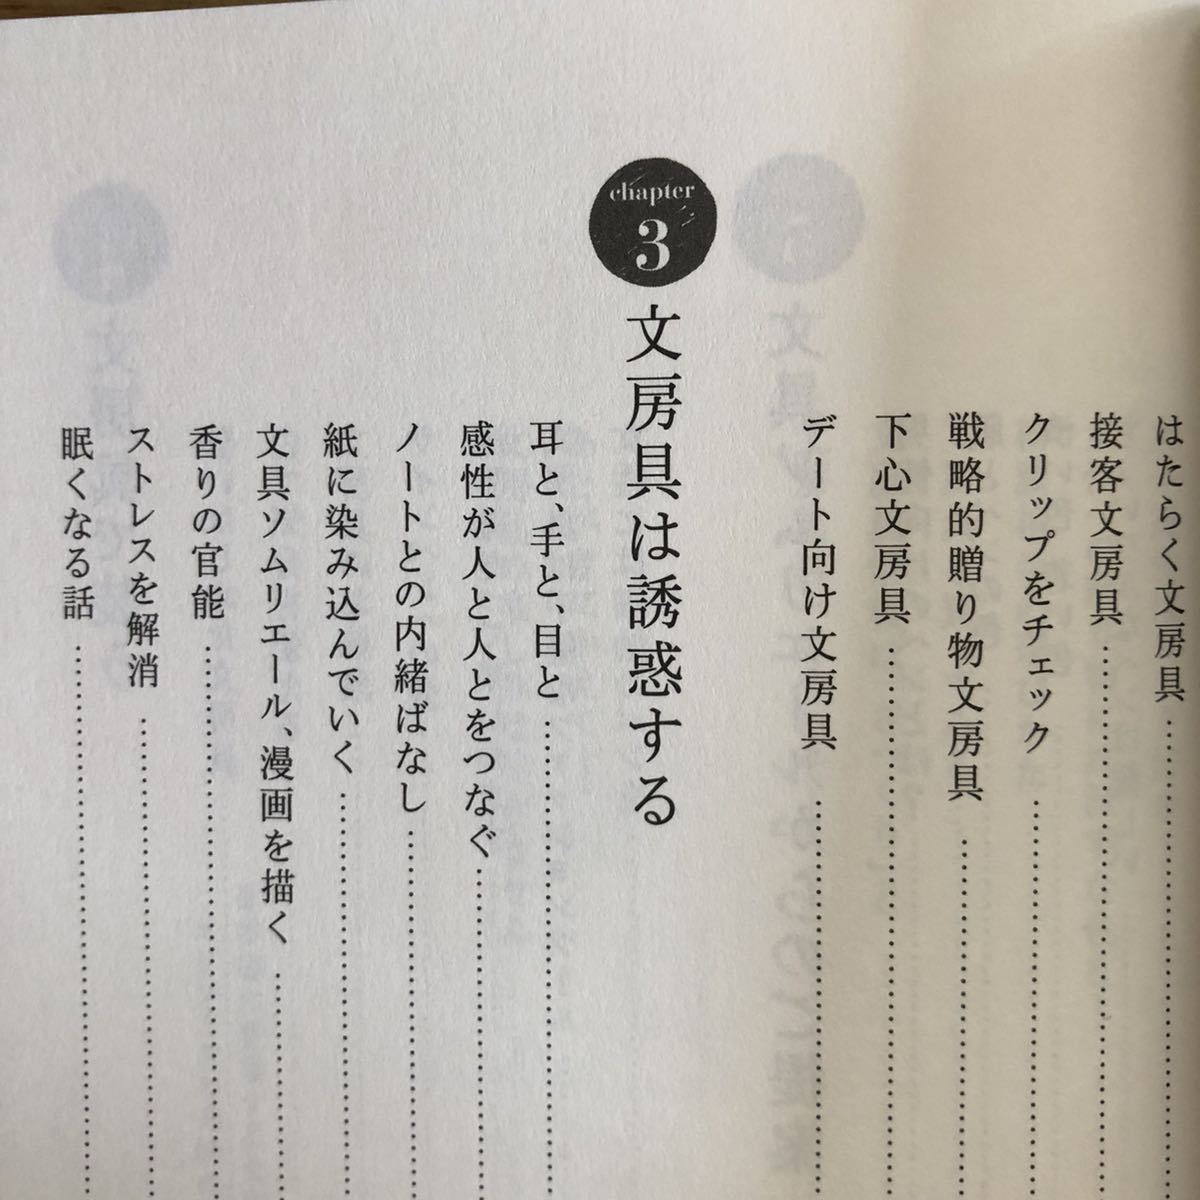 はたらく文房具
接客文房具
クリップをチェック
戦略的贈り物文房具
下心文房具
デート向け文房具
chapter
3
文房具は誘惑する
耳と、手と、目と
感性が人と人とをつなぐ
ノートとの内緒ばなし
紙に染み込んでいく
文具ソムリエール、漫画を描く
香りの官能
ストレスを解消
眠くなる話